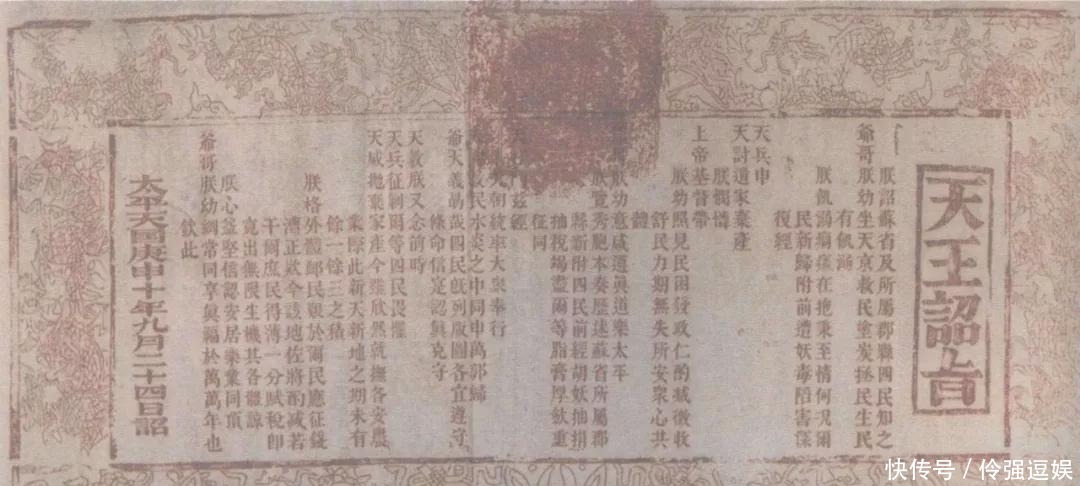 天王詔旨
朕詔蘇省及所屬郡縣四民知之
爺哥朕幼坐天京救民塗炭拯民生民
有飢溺
朕飢溺痌瘝在抱秉至情何況爾
民新歸附前遭妖毒陷害深
復經
天兵申
天討遺家棄產
朕憫憐
上帝基督帶
朕幼照見民困發政仁酌減徵收
舒民力期無失所安衆心共
體
朕幼意咸遵眞道樂太平
朕覽秀胞本奏歷述蘇省所屬郡
縣新附四民前經胡妖抽捐
抽稅塲盡爾等脂膏厚斂重
征同
茲經
朝統率大衆奉行
民水炎之中同申萬郭歸
爺天義爲哉四民旣列版圖各宜遵守
條命信寔認眞克守
天教朕又念前時
天兵征剿爾等四民畏懼
天威拋棄家產今雖欣然就撫各安農
業際此新天新地之期未有
餘一餘三之積
朕格外體䘏民艱於爾民應征錢
漕正款今該地佐將酌減若
干爾庶民得薄一分賦稅卽
寬出無限生機其各體諒
朕心益堅信認安居樂業同頂
爺哥朕幼綱常同享眞福於萬萬年也
欽此
太平天囯庚申十年九月二十四日詔
快传号／伶强逗娱